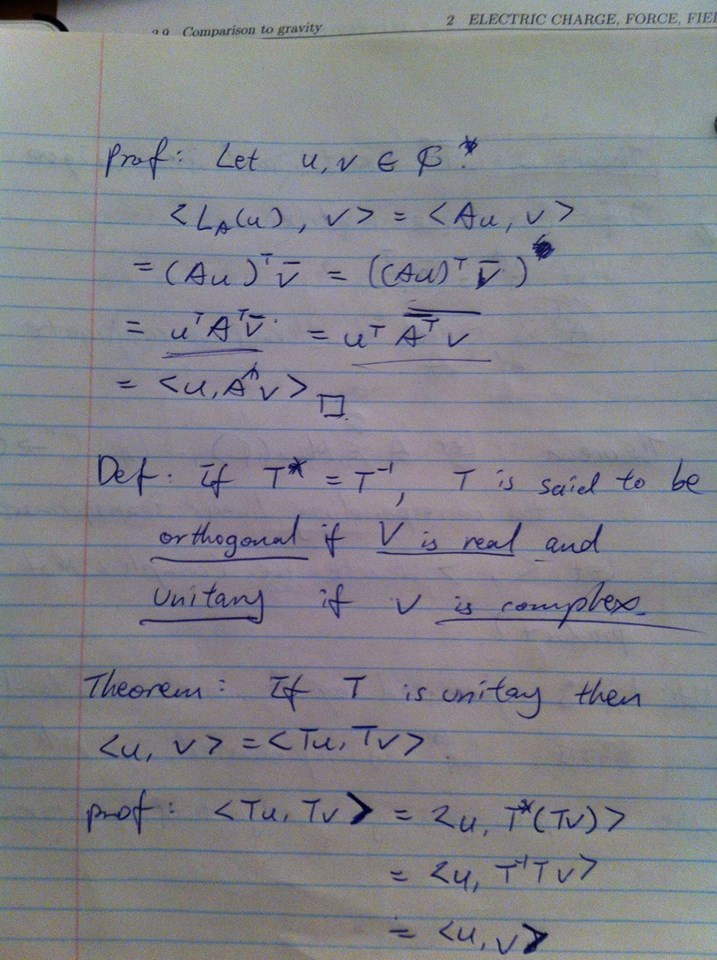 2.9 Comparison to gravity
2 ELECTRIC CHARGE, FORCE, FIE
prof: Let u, v ∈ ₵*.
<L_A(u), v> = <Au, v>
= (Au)ᵀ v̅ = ((Au)ᵀ v̅)
= uᵀAᵀv̅ = uᵀ \overline{\overline{Aᵀ} v}
= <u, A^*v> □.
Def: If T* = T⁻¹, T is said to be
orthogonal if V is real and
Unitary if V is complex.
Theorem: If T is unitay then
<u, v> = <Tu, Tv>
prof: <Tu, Tv> = <u, T*(Tv)>
= <u, T⁻¹Tv>
= <u, v>